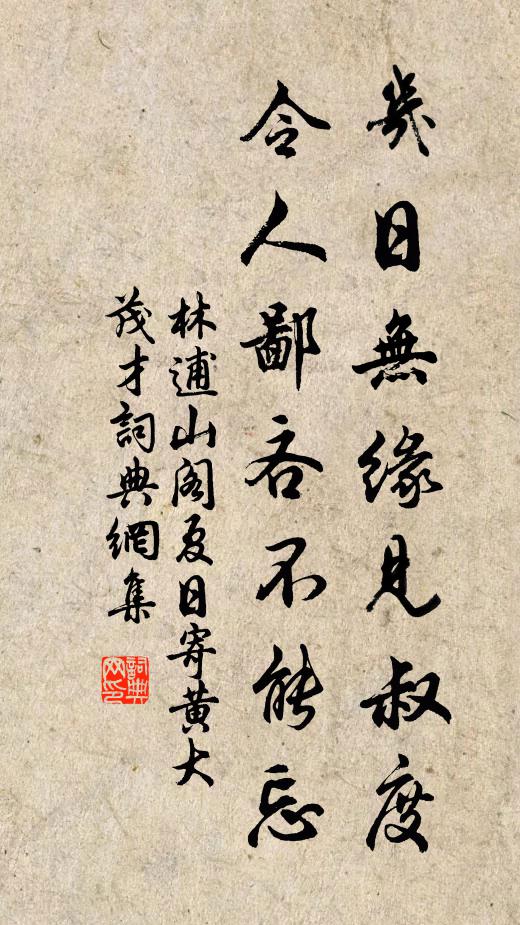 幾日無緣見叔度
令人鄙吝不能忘
林逋山閣夏日寄黃大
茂才詞典網集
詞典網印